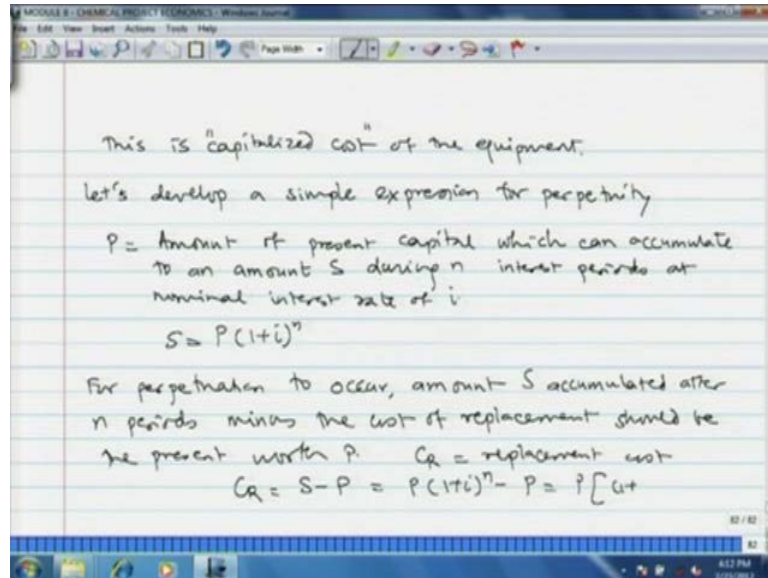 MODULE 8 - CHEMICAL PROJECT ECONOMICS - Windows Journal
File Edit View Insert Actions Tools Help
Page Width
This is "capitalized cost" of the equipment.
Let's develop a simple expression for perpetuity
P = Amount of present capital which can accumulate
to an amount S during n interest periods at
nominal interest rate of i
S = P(1+i)^n
For perpetuation to occur, amount S accumulated after
n periods minus the cost of replacement should be
the present worth P. C_R = replacement cost
C_R = S-P = P(1+i)^n - P = P[(1+
82 / 82
82
4:12 PM